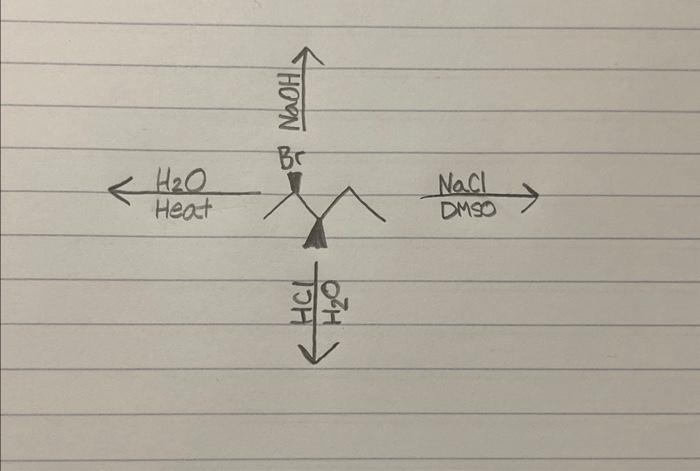 NaOH
Br
H₂O
Heat
NaCl
DMSO
HCl
H₂O